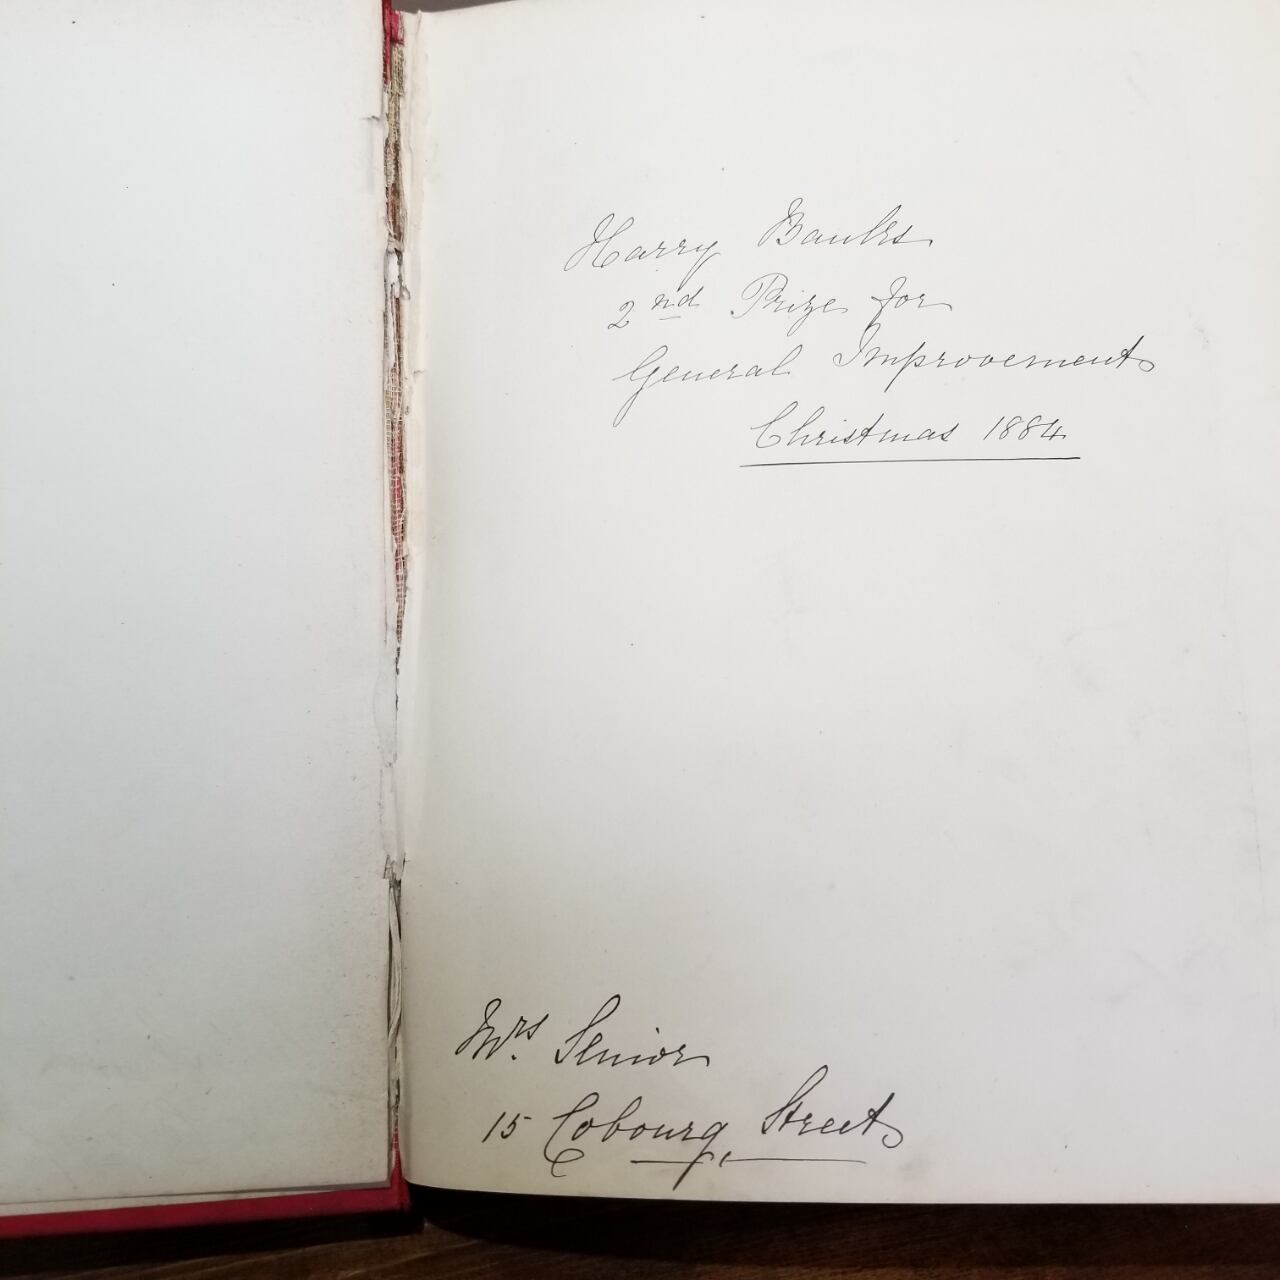 Harry Banks
2nd Prize for
General Improvement
Christmas 1884
Mrs. Senior
15 Cobourg Street